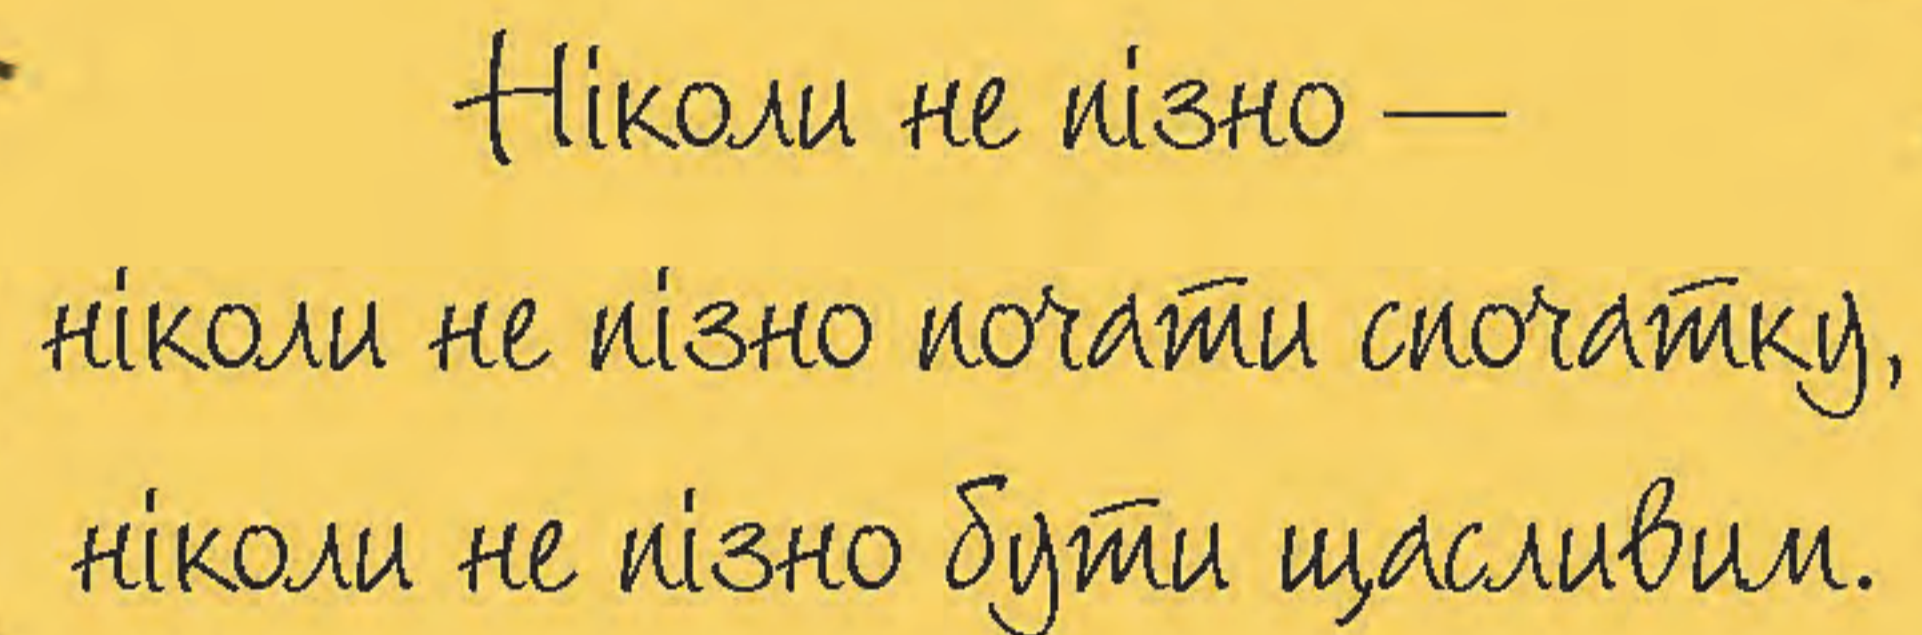 Ніколи не пізно —
ніколи не пізно почати спочатку,
ніколи не пізно бути щасливим.